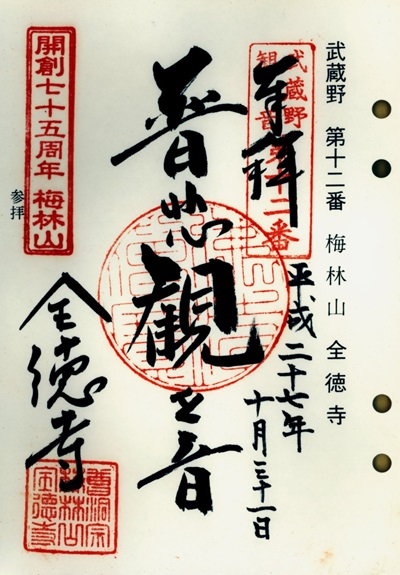 武蔵野 第十二番 梅林山 全徳寺
武蔵野
観音第十二番
奉拝
平成二十七年
十月三十一日
悲観世音
開創七十五周年 梅林山
参拝
全徳寺
曹洞宗
梅林山
全徳寺